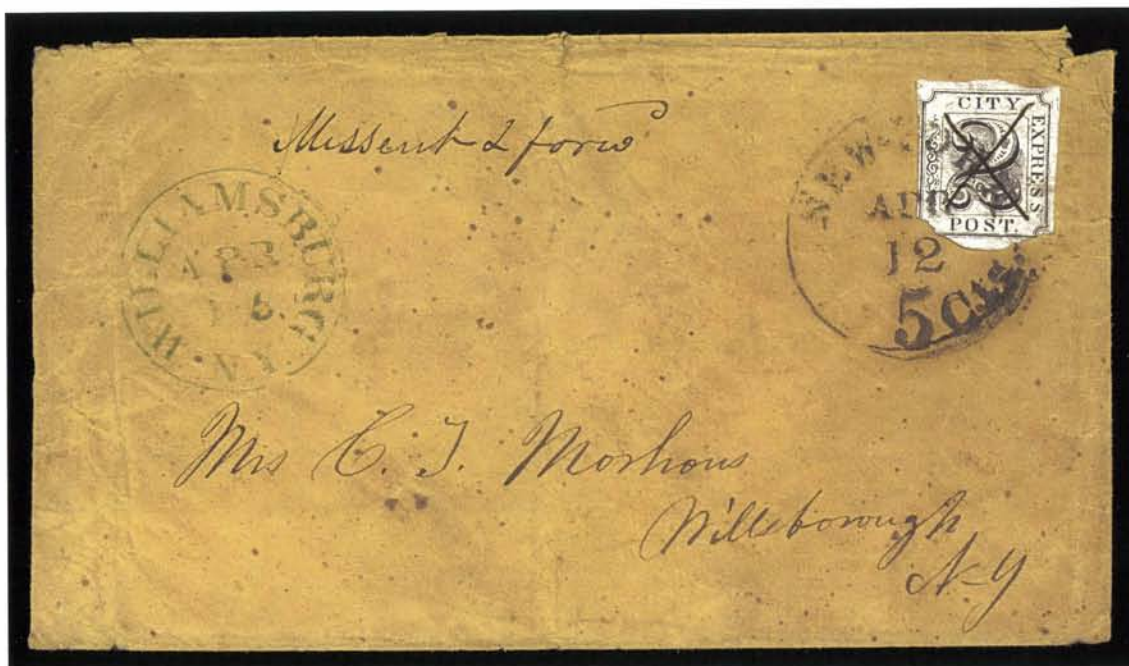 Missent & forwd
CITY
EXPRESS
POST.
2
NEW
12
5 Cts.
WILLIAMSBURG N.Y.
APR
Mrs C. J. Morhous
Willsborough
N-Y